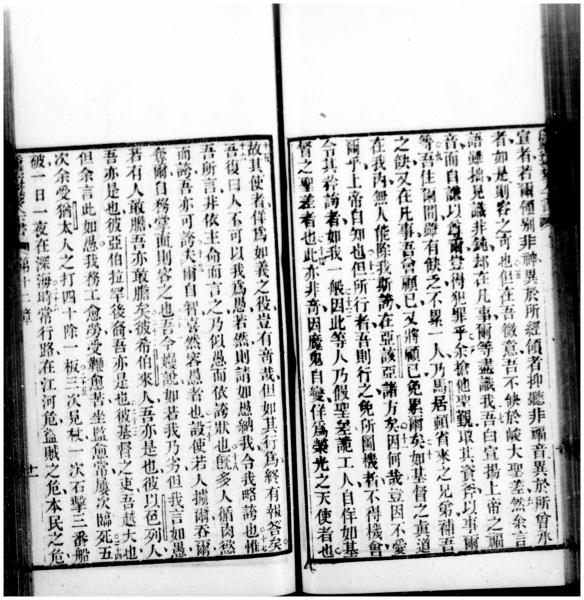 宣者若爾領別非神異於所經領者抑聽非福音異於所曾承
者如是則容之可也但在吾微意吾不缺於最大聖差然余言
語雖拙見識非純却在凡事爾等盡識我吾白宣揚上帝之福
音而自謙以尊爾豈得犯罪乎余搶他聖觀取其資斧以事爾
等吾住爾間雖有缺乏不累一人乃馬居頓省來之兄弟補吾
之缺又在凡事吾會顧己又將顧己免累爾矣如基督之真道
在我內無人能除我斯誇在亞該亞諸方矣因何哉豈因不愛
爾乎上帝自知也但所行者吾則行之免所圖機者不得機會
令其有誇者如我一般因此等人乃假聖差詭工人自佯如基
督之聖差者也此亦非奇因魔鬼自變佯為榮光之天使者也
故其使者佯為如義之役豈有奇哉但如其行為終有報答矣
吾復曰人不可以我為愚若然則請如愚納我令我略誇也惟
吾所言非依主命而言之乃似愚而依誇狀也旣多人循肉慾
而誇吾亦可誇夫爾自智喜然容愚者也設使若人據爾吞爾
奪爾自務掌面則容之也吾今媿說如若我乃劣但我言如愚
若有人敢膽吾亦敢膽矣彼希伯來人吾亦是也彼以色列人
吾亦是也彼亞伯拉罕後裔吾亦是也彼基督之吏吾越大也
但余言此如愚我務工愈勞受鞭愈苦坐監愈常屢次臨死五
次余受猶太人之打四十除一板三次見杖一次石擊三番船
破一日一夜在深海時常行路在江河危盜賊之危本民之危